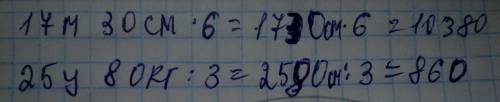 17м 30см · 6 = 1730см · 6 = 10380
25ц 80кг : 3 = 2580см : 3 = 860